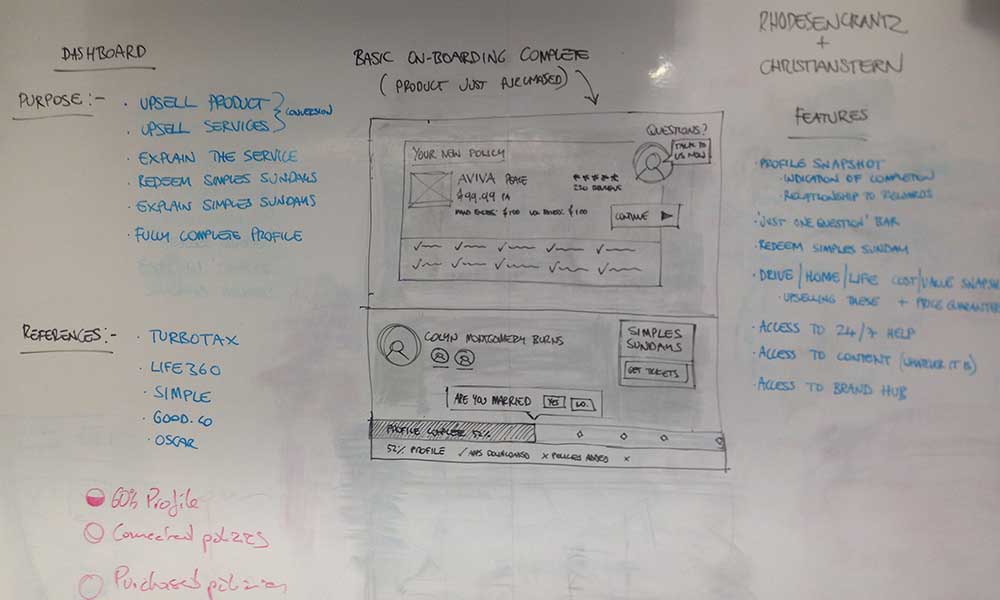 DASHBOARD
PURPOSE:-
· UPSELL PRODUCT
· UPSELL SERVICES
CONVERSION
· EXPLAIN THE SERVICE
· REDEEM SIMPLES SUNDAYS
· EXPLAIN SIMPLES SUNDAYS
· FULLY COMPLETE PROFILE
REFERENCES:-
· TURBOTAX
· LIFE360
· SIMPLE
· GOOD.CO
· OSCAR
60% Profile
Connected policies
Purchased policies
BASIC ON-BOARDING COMPLETE
(PRODUCT JUST PURCHASED)
QUESTIONS?
TALK TO
US NOW
YOUR NEW POLICY
AVIVA
$99.99 PA
230 REVIEWS
$100 $100
CONTINUE
COLYN MONTGOMERY BURNS
SIMPLES
SUNDAYS
GET TICKETS
ARE YOU MARRIED YES NO.
PROFILE 52%
52% PROFILE ✓ APPS DOWNLOADED × POLICIES ADDED ×
RHODESENCRANTZ
+
CHRISTIANSTERN
FEATURES
· PROFILE SNAPSHOT
· INDICATION OF COMPLETION
· RELATIONSHIP TO REWARDS
· 'JUST ONE QUESTION' BAR
· REDEEM SIMPLES SUNDAY
· DRIVE/HOME/LIFE COST/VALUE SNAPSH
· UPSELLING THESE + PRICE GUARANTEE
· ACCESS TO 24/7 HELP
· ACCESS TO CONTENT (WHATEVER IT IS)
· ACCESS TO BRAND HUB